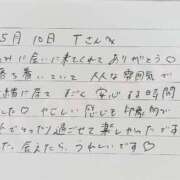 5月10日 Tさんへ
に会いに来てくれてありがとう♡
落ち着いていて 大人な雰囲気が
一緒に居て すごく安心する時間
した♡ やさしい感じも印象的が
とてもゆったり過ごせて楽しかったです
た、会えたら、うれしいです♡